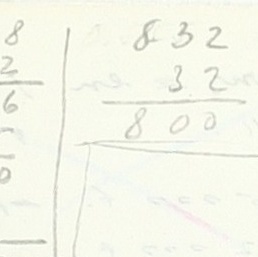 8
2
6
0
832
32
800